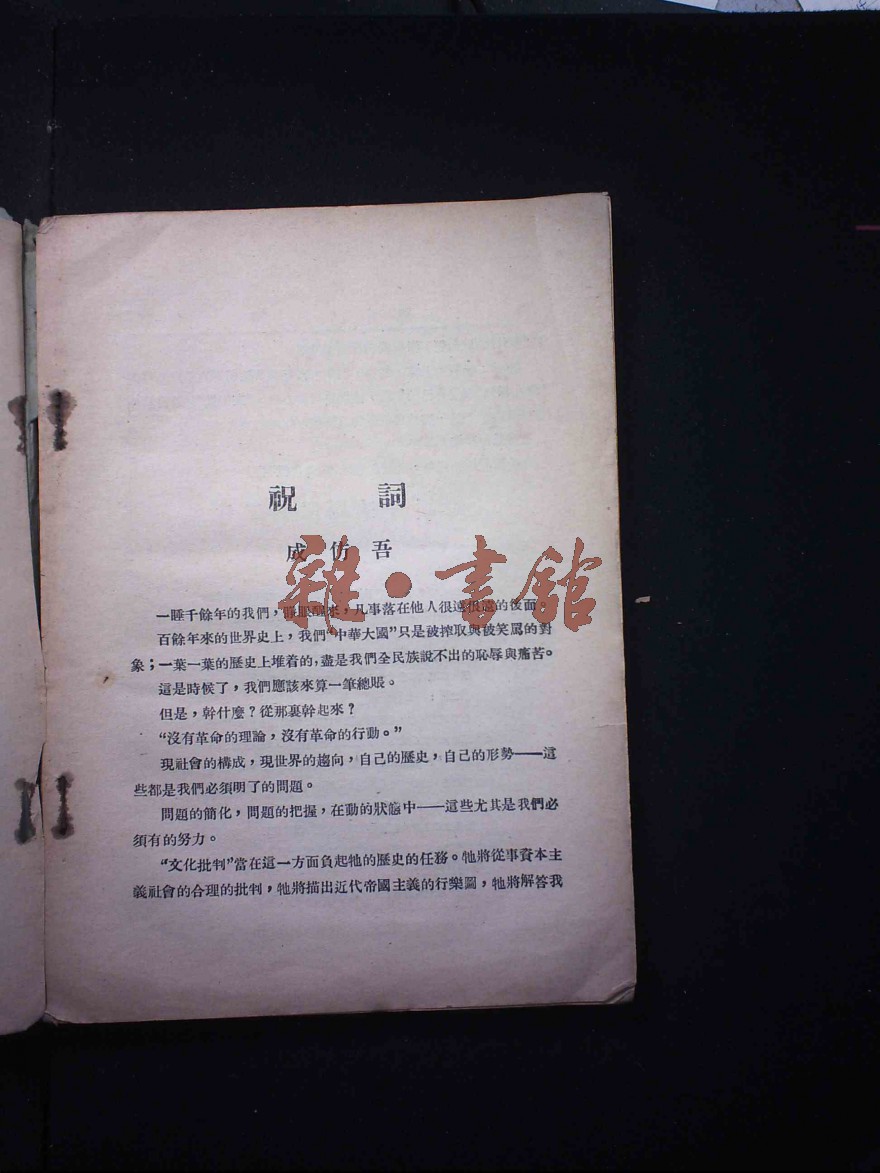 祝 詞
成 仿 吾
雜·書館
一睡千餘年的我們，睡眼醒來，凡事落在他人很遠很遠的後面。
百餘年來的世界史上，我們“中華大國”只是被搾取與被笑罵的對
象；一葉一葉的歷史上堆着的，盡是我們全民族說不出的恥辱與痛苦。
這是時候了，我們應該來算一筆總賬。
但是，幹什麼？從那裏幹起來？
“沒有革命的理論，沒有革命的行動。”
現社會的構成，現世界的趨向，自己的歷史，自己的形勢——這
些都是我們必須明了的問題。
問題的簡化，問題的把握，在動的狀態中——這些尤其是我們必
須有的努力。
“文化批判”當在這一方面負起牠的歷史的任務。牠將從事資本主
義社會的合理的批判，牠將描出近代帝國主義的行樂圖，牠將解答我